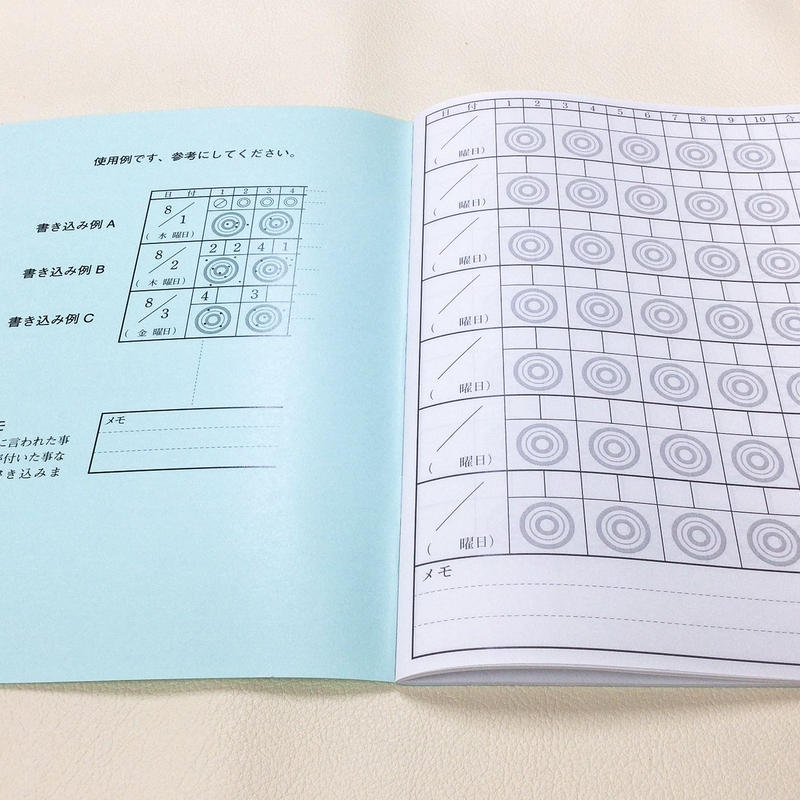 使用例です、参考にしてください。
日 付 1 2 3 4
書き込み例 A
8/1
( 木 曜日)
書き込み例 B
8/2
( 木 曜日)
2 2 4 1
書き込み例 C
8/3
( 金 曜日)
4 3
モ
に言われた事
付いた事な
き込みま
メモ
日 付 1 2 3 4 5 6 7 8 9 10 合
( 曜日)
( 曜日)
( 曜日)
( 曜日)
( 曜日)
( 曜日)
( 曜日)
メモ